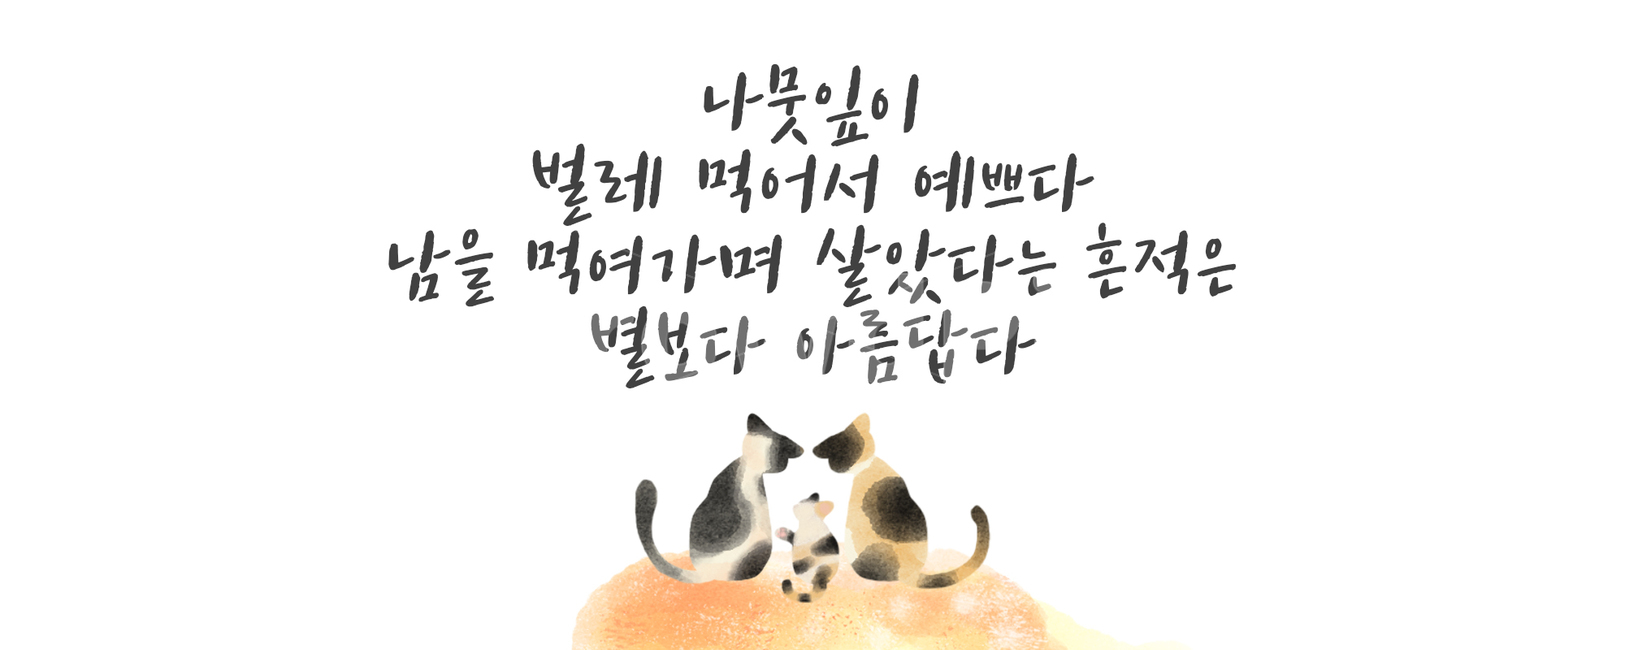 나뭇잎이
벌레 먹어서 예쁘다
남을 먹여가며 살았다는 흔적은
별보다 아름답다